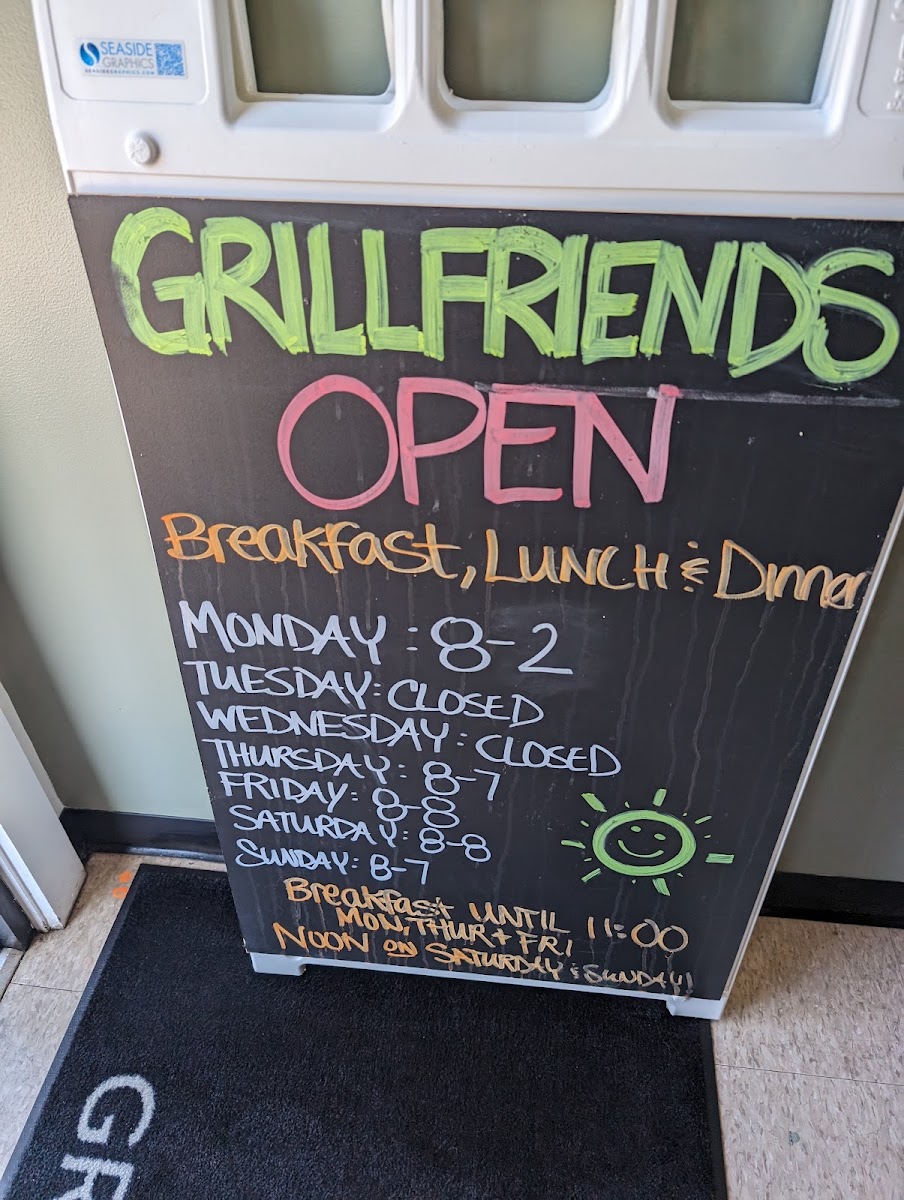 SEASIDE
GRAPHICS
SEASIDEGRAPHICS.COM
GRILLFRIENDS
OPEN
Breakfast, LUNCH & Dinner
MONDAY: 8-2
TUESDAY: CLOSED
WEDNESDAY: CLOSED
THURSDAY: 8-7
FRIDAY: 8-8
SATURDAY: 8-8
SUNDAY: 8-7
Breakfast UNTIL 11:00
MON, THUR + FRI
NOON ON SATURDAY & SUNDAY!
GR